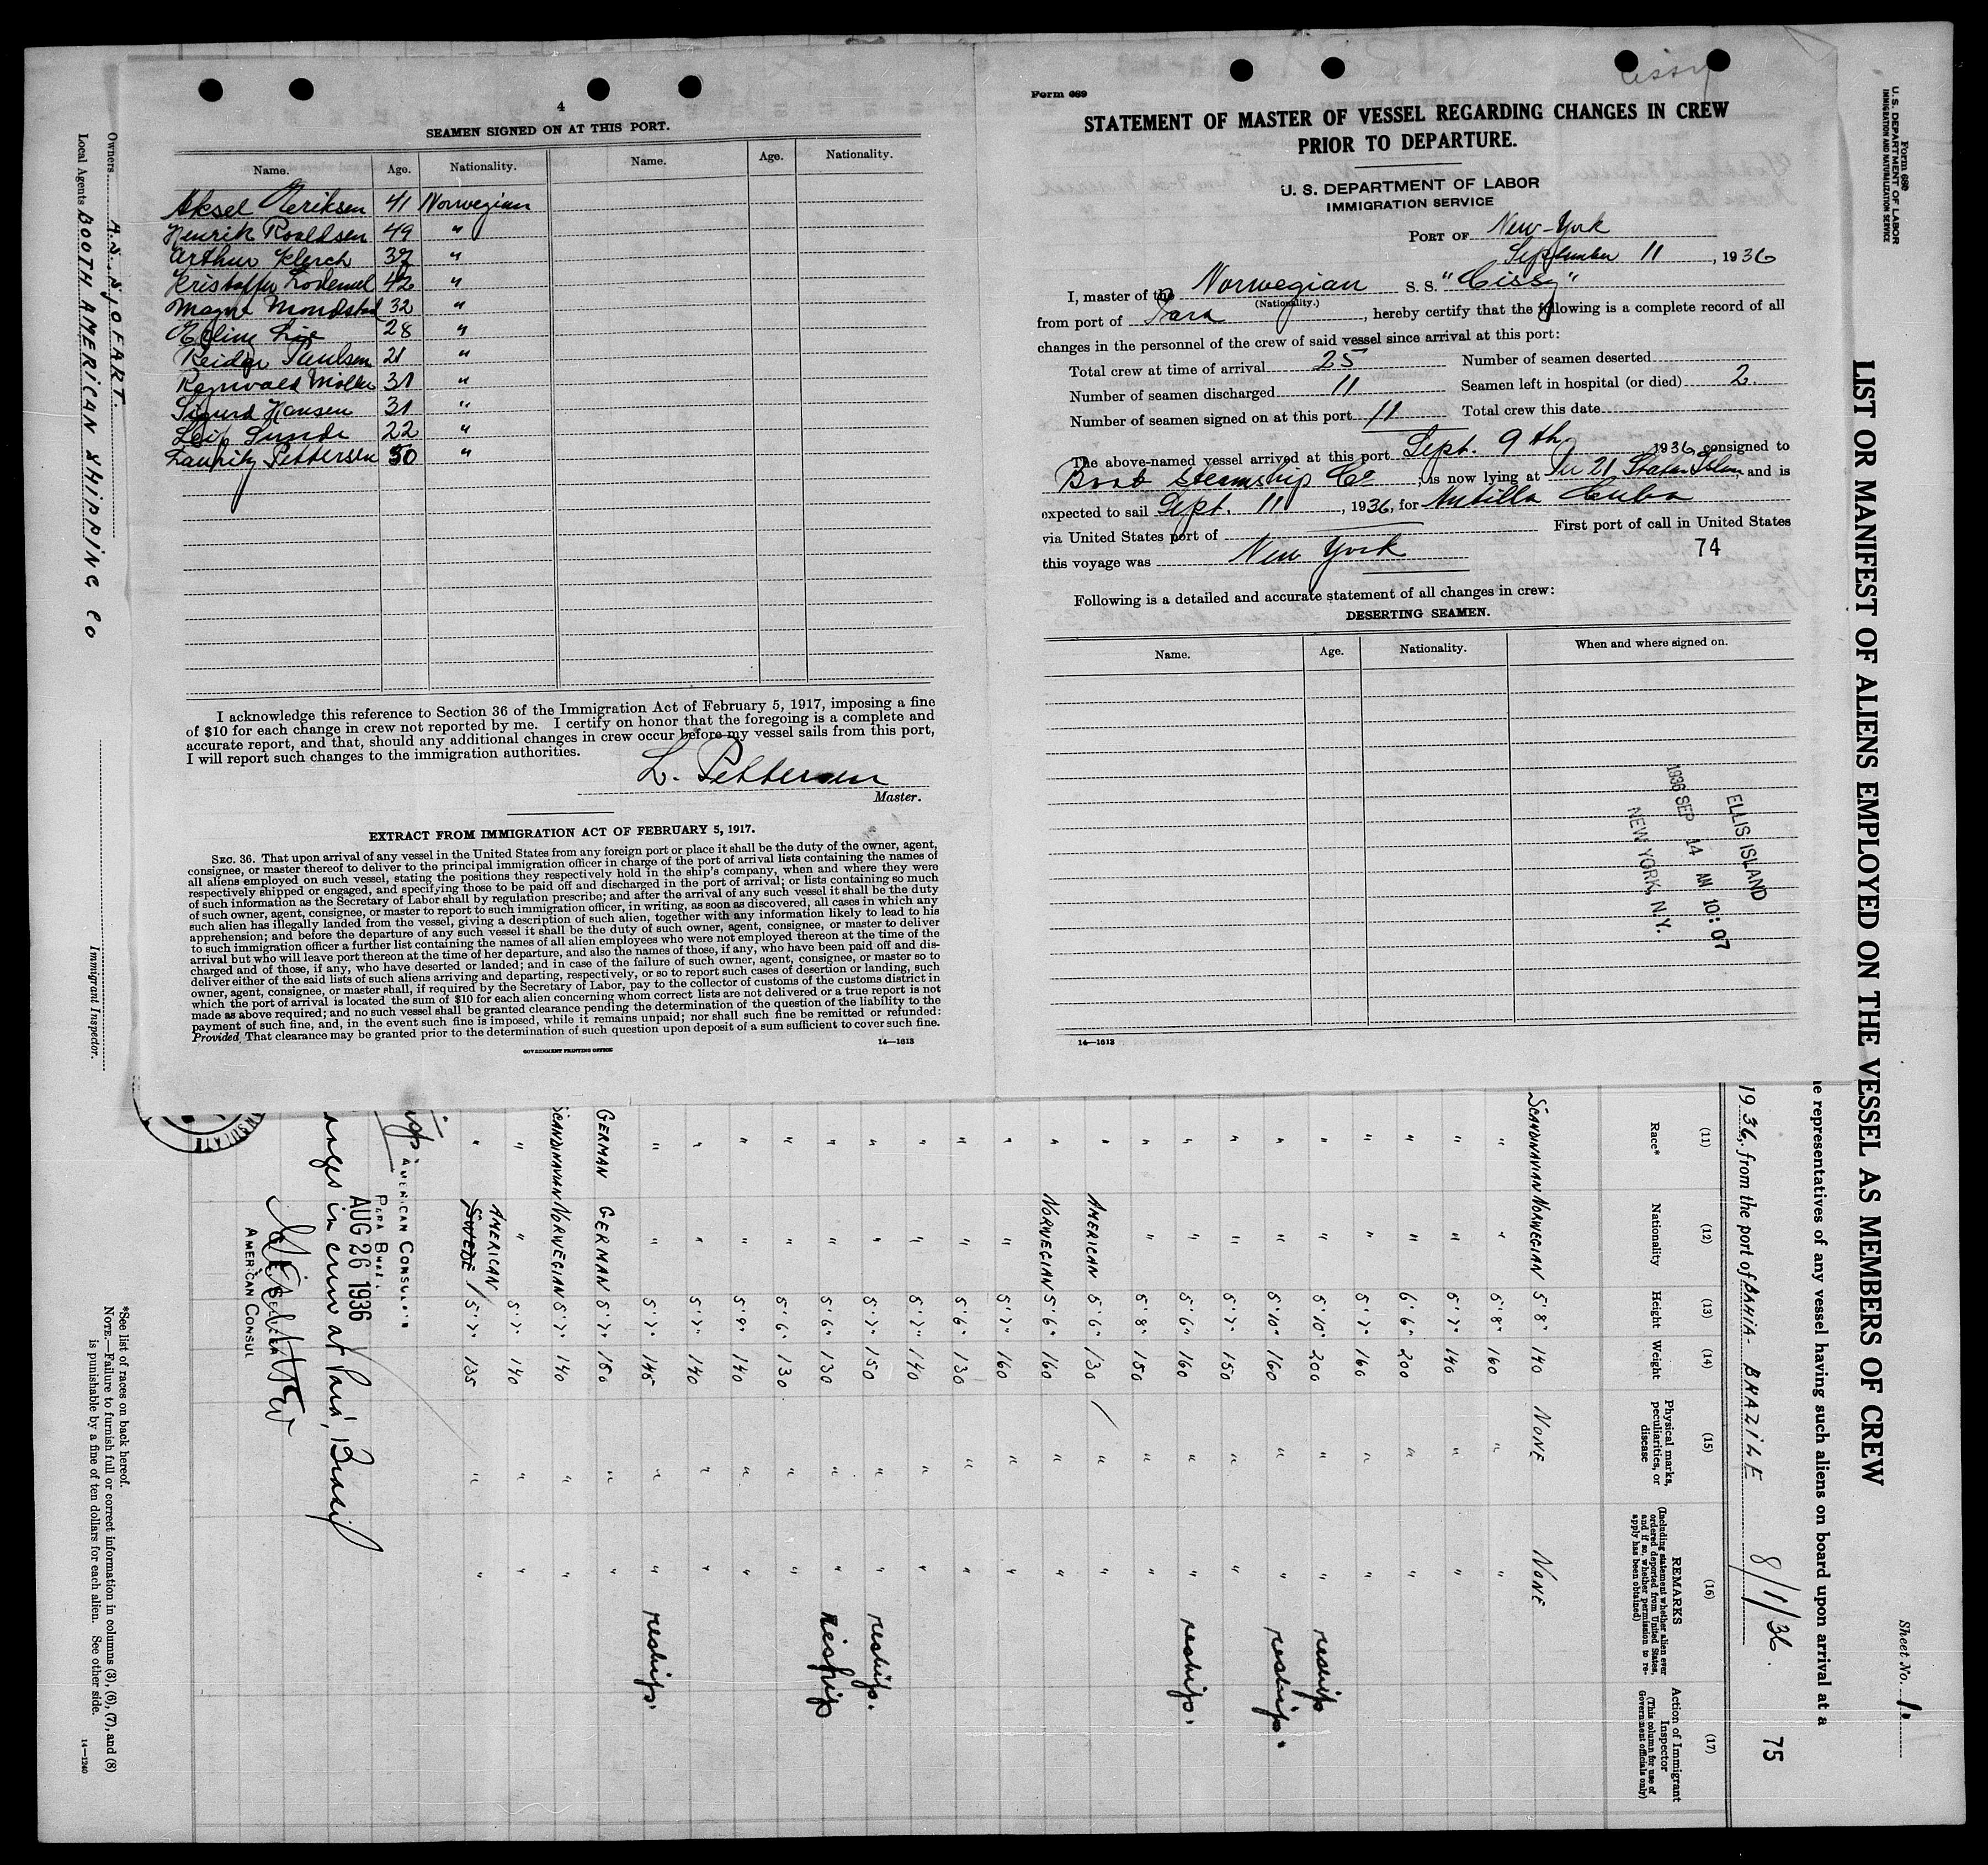 4
SEAMEN SIGNED ON AT THIS PORT.
Name. Age. Nationality. Name. Age. Nationality.
Aksel Eriksen 41 Norwegian
Henrik Roaldsen 49 "
Arthur Klerch 37 "
Kristoffer 42 "
Magne 32 "
28 "
Reidar Paulsen 21 "
Ragnvald Moller 31 "
Sigurd Hansen 31 "
Leif Sunde 22 "
Lauritz Pettersen 50 "
I acknowledge this reference to Section 36 of the Immigration Act of February 5, 1917, imposing a fine
of $10 for each change in crew not reported by me. I certify on honor that the foregoing is a complete and
accurate report, and that, should any additional changes in crew occur before my vessel sails from this port,
I will report such changes to the immigration authorities.
L. Pettersen
Master.
EXTRACT FROM IMMIGRATION ACT OF FEBRUARY 5, 1917.
SEC. 36. That upon arrival of any vessel in the United States from any foreign port or place it shall be the duty of the owner, agent,
consignee, or master thereof to deliver to the principal immigration officer in charge of the port of arrival lists containing the names of
all aliens employed on such vessel, stating the positions they respectively hold in the ship's company, when and where they were
respectively shipped or engaged, and specifying those to be paid off and discharged in the port of arrival; or lists containing so much
of such information as the Secretary of Labor shall by regulation prescribe; and after the arrival of any such vessel it shall be the duty
of such owner, agent, consignee, or master to report to such immigration officer, in writing, as soon as discovered, all cases in which any
such alien has illegally landed from the vessel, giving a description of such alien, together with any information likely to lead to his
apprehension; and before the departure of any such vessel it shall be the duty of such owner, agent, consignee, or master to deliver
to such immigration officer a further list containing the names of all alien employees who were not employed thereon at the time of the
arrival but who will leave port thereon at the time of her departure, and also the names of those, if any, who have been paid off and dis-
charged and of those, if any, who have deserted or landed; and in case of the failure of such owner, agent, consignee, or master so to
deliver either of the said lists of such aliens arriving and departing, respectively, or so to report such cases of desertion or landing, such
owner, agent, consignee, or master shall, if required by the Secretary of Labor, pay to the collector of customs of the customs district in
which the port of arrival is located the sum of $10 for each alien concerning whom correct lists are not delivered or a true report is not
made as above required; and no such vessel shall be granted clearance pending the determination of the question of the liability to the
payment of such fine, and, in the event such fine is imposed, while it remains unpaid; nor shall such fine be remitted or refunded:
Provided, That clearance may be granted prior to the determination of such question upon deposit of a sum sufficient to cover such fine.
GOVERNMENT PRINTING OFFICE
14—1613
Cissy
Form 689
STATEMENT OF MASTER OF VESSEL REGARDING CHANGES IN CREW
PRIOR TO DEPARTURE.
U. S. DEPARTMENT OF LABOR
IMMIGRATION SERVICE
PORT OF New-York
September 11, 1936
I, master of the Norwegian S. S. "Cissy"
(Nationality.)
from port of Para, hereby certify that the following is a complete record of all
changes in the personnel of the crew of said vessel since arrival at this port:
Total crew at time of arrival 25 Number of seamen deserted
Number of seamen discharged 11 Seamen left in hospital (or died) 2.
Number of seamen signed on at this port 11 Total crew this date
The above-named vessel arrived at this port Sept. 9th, 1936, consigned to
Steamship Co; is now lying at 21 Staten Island, and is
expected to sail Sept. 11, 1936, for Antilla Cuba
via United States port of First port of call in United States
this voyage was New York
74
Following is a detailed and accurate statement of all changes in crew:
DESERTING SEAMEN.
Name. Age. Nationality. When and where signed on.
ELLIS ISLAND
1936 SEP 14 AM 10:07
NEW YORK, N.Y.
14—1613
Form 680
U. S. DEPARTMENT OF LABOR
IMMIGRATION AND NATURALIZATION SERVICE
Sheet No. 1.
LIST OR MANIFEST OF ALIENS EMPLOYED ON THE VESSEL AS MEMBERS OF CREW
e representatives of any vessel having such aliens on board upon arrival at a
1936, from the port of BAHIA - BRAZILE 8/1/36. 75
(11) (12) (13) (14) (15) (16) (17)
Race* Nationality Height Weight Physical marks, peculiarities, or disease REMARKS (Including statement whether alien ever ordered deported from United States, and if so, whether permission to re-apply has been obtained) Action of Immigrant Inspector (This column for use of Government officials only)
SCANDINAVIAN NORWEGIAN 5'8" 140 NONE NONE
" " 5'8" 160 " "
" " 5'7" 140 " "
" " 6'6" 200 " "
" " 5'7" 160 " "
" " 5'10" 200 " " reships
" " 5'10" 160 " " reships.
" " 5'7" 150 " "
" " 5'6" 160 " " reships.
" " 5'8" 150 " "
" AMERICAN 5'6" 130 / " "
" NORWEGIAN 5'6" 160 " "
" " 5'7" 160 " "
" " 5'6" 130 " "
" " 5'7" 140 " "
" " 5'7" 150 " " reships.
" " 5'6" 130 " " reships
" " 5'6" 130 " "
" " 5'9" 140 " "
" " 5'7" 140 " "
" " 5'7" 145 " " reships.
GERMAN GERMAN 5'7" 150 " "
SCANDINAVIAN NORWEGIAN 5'7" 140 " "
" " 5'7" 140 " "
" SWEDE AMERICAN 5'7" 135 " "
AMERICAN CONSULATE
AUG 26 1936
anges in crew at Pará, Brasil
AMERICAN CONSUL
*See list of races on back hereof.
NOTE.—Failure to furnish full or correct information in columns (3), (6), (7), and (8)
is punishable by a fine of ten dollars for each alien. See other side.
14—1240
Owners A.S. SJOFART.
Local Agents BOOTH AMERICAN SHIPPING CO
Immigrant Inspector.